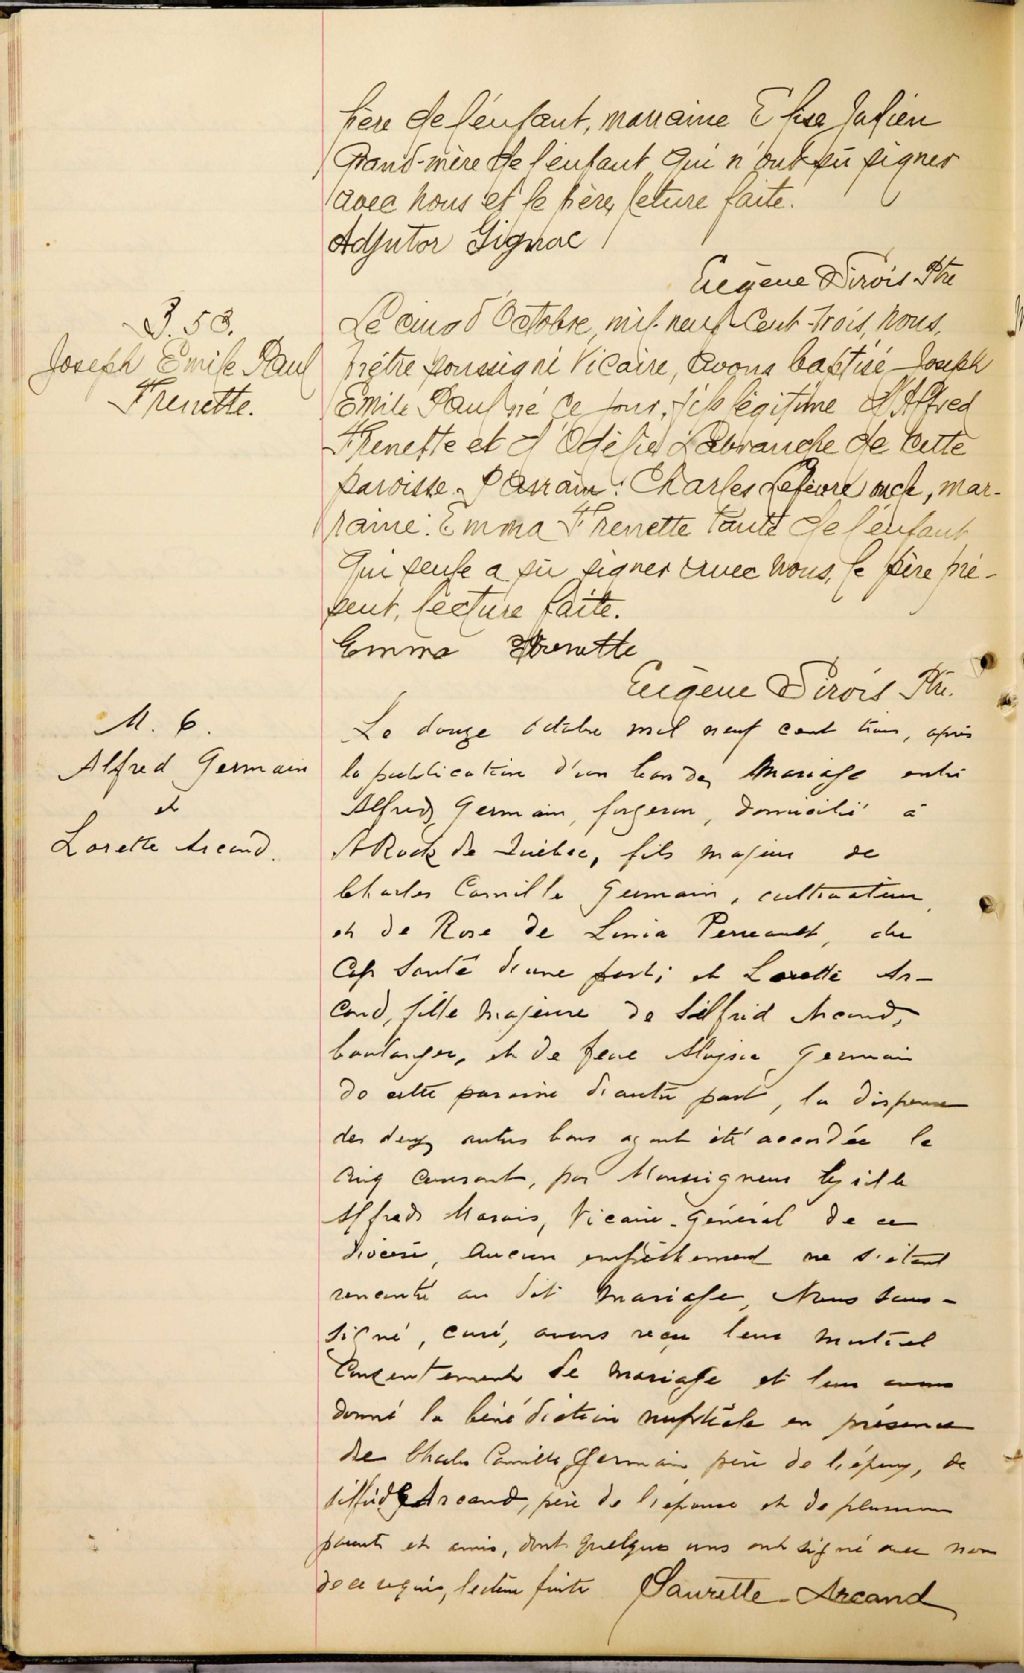 père de l'enfant, marraine Elise Julien
Grand-mère de l'enfant qui n'ont sû signer
avec nous et le père, leture faite.
Adjutor Gignac
Eugène Sirois Ptre
B. 53.
Joseph Emile Paul
Frenette.
Le cinq d'Octobre, mil-neuf-Cent-trois, nous,
prêtre soussigné Vicaire, avons baptisé Joseph
Emile Paul né ce jour, fils légitime d'Alfred
Frenette et d'Odélie Labranche de cette
paroisse. Parrain: Charles Lefèvre oncle, mar-
raine: Emma Frenette tante de l'enfant
qui seule a sû signer avec nous, le père pré-
sent, lecture faite.
Emma Frenette
Eugène Sirois Ptre.
M. 6.
Alfred Germain
et
Lorette Arcand.
Le douze octobre mil neuf cent trois, après
la publication d'un ban de mariage entre
Alfred Germain, forgeron, domicilié à
St Roch de Québec, fils majeur de
Charles Camille Germain, cultivateur,
et de Rose de Perreault, du
Cap Santé d'une part; et Lorette Ar-
cand, fille majeure de Silfrid Arcand,
boulanger, et de feue Germain
de cette paroisse d'autre part, la dispense
des deux autres bans ayant été accordée le
cinq courant, par Monseigneur Cyrille
Alfred Marois, Vicaire-Général de ce
diocèse, aucun empêchement ne s'étant
rencontré au dit mariage, Nous sous-
signé, curé, avons reçu leur mutuel
consentement de mariage et leur avons
donné la bénédiction nuptiale en présence
de Charles Camille Germain père de l'époux, de
Silfrid Arcand, père de l'épouse et de plusieurs
parents et amis, dont quelques uns ont signé avec nous
de ce requis, lecture faite Laurette Arcand